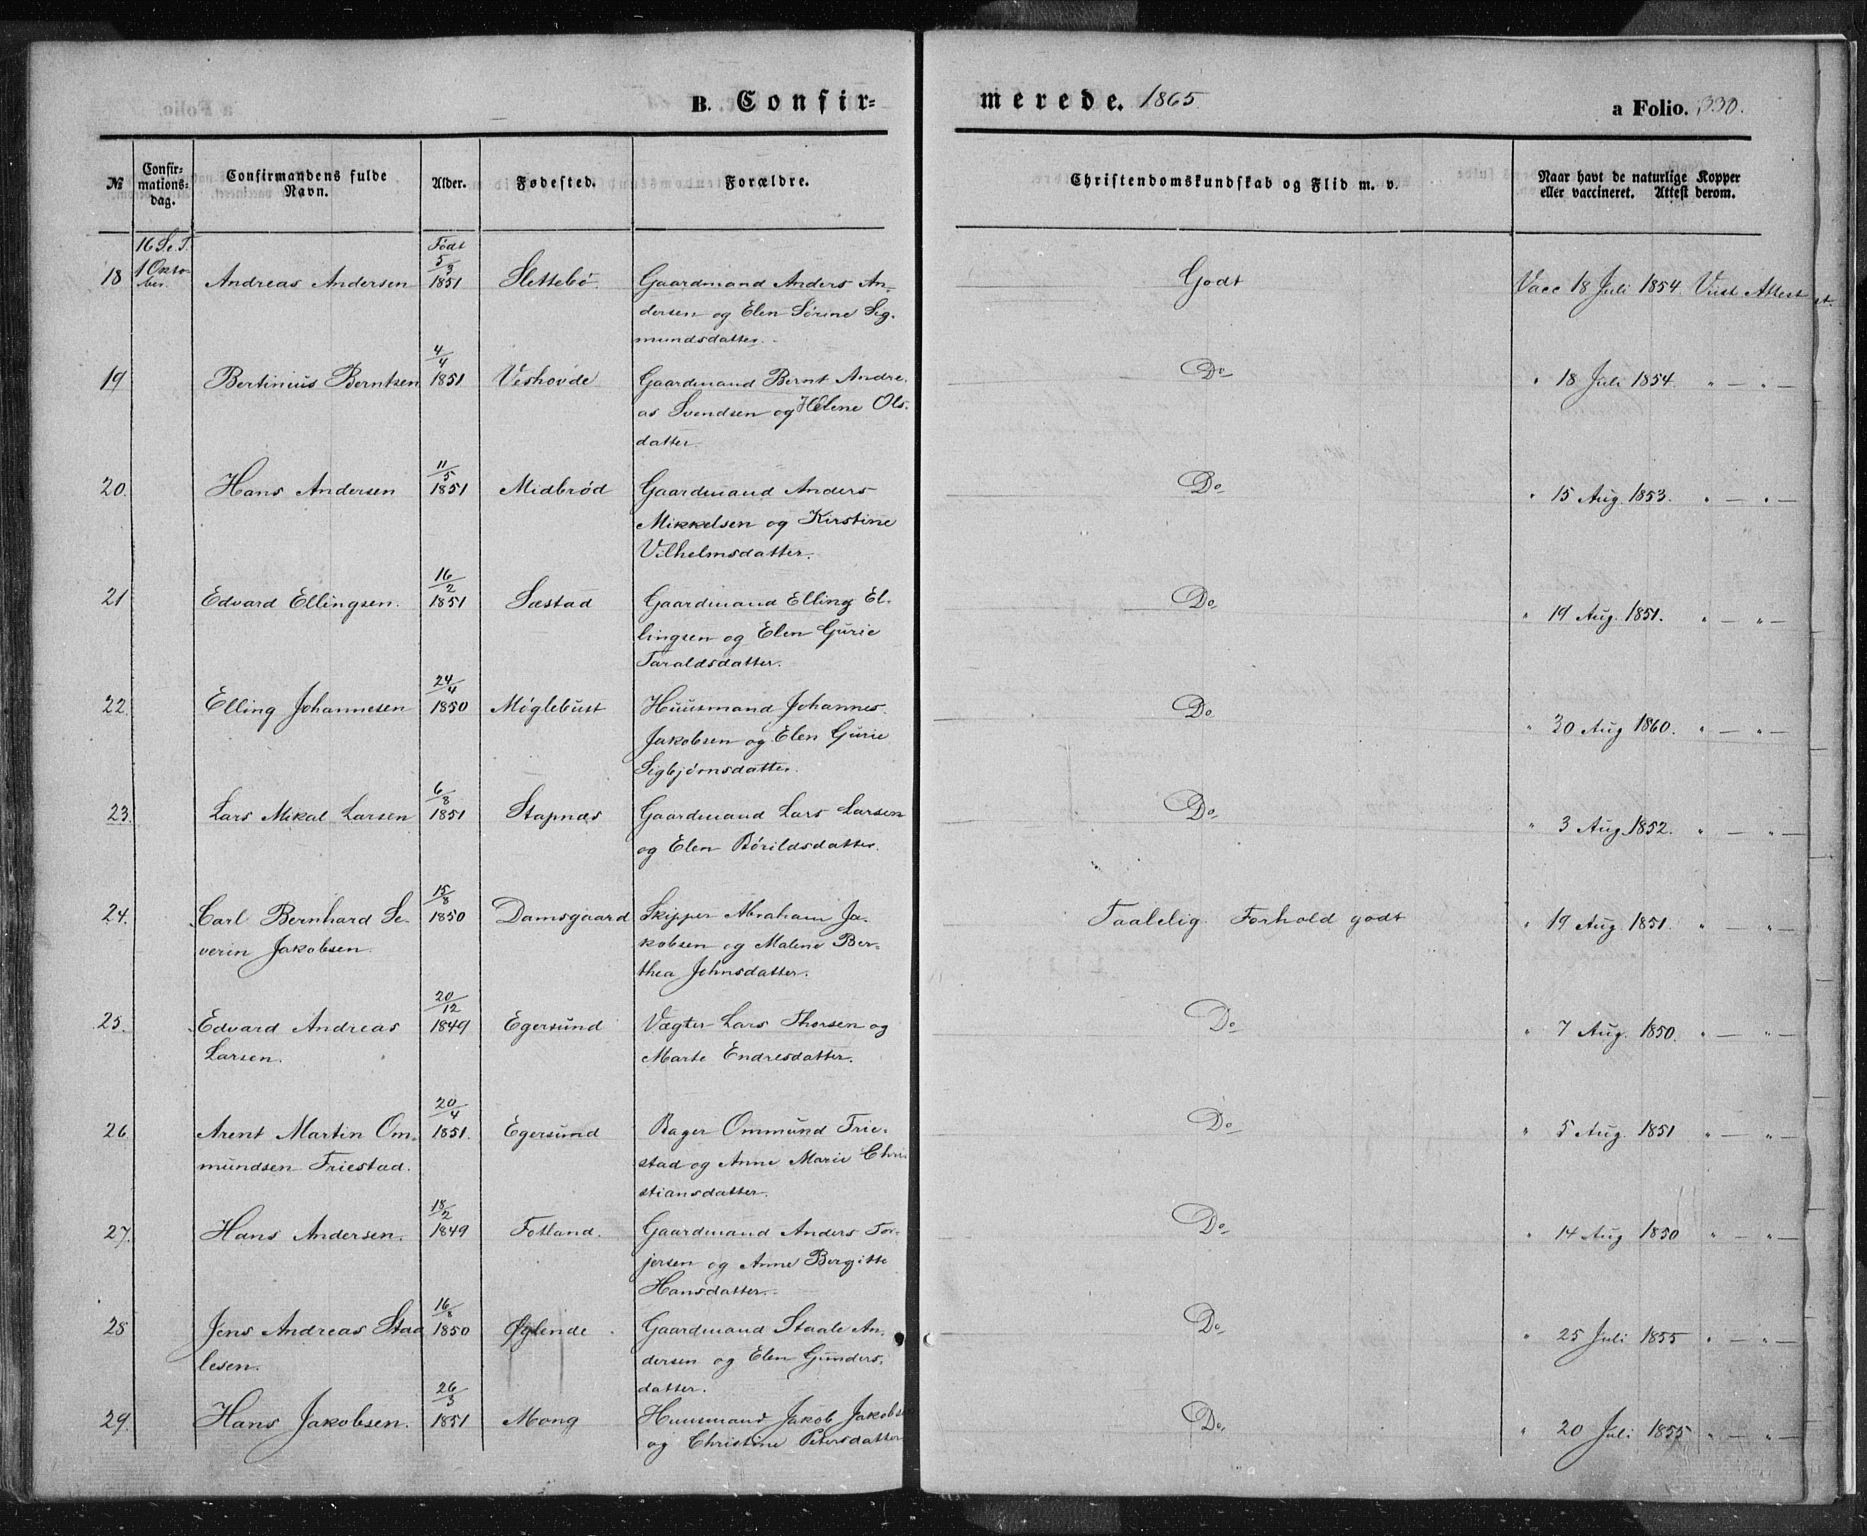 B. Confir= merede. 1865 a Folio. 330.
№ Confir-mations-dag. Confirmandens fulde Navn. Alder. Fødested. Forældre. Christendomskundskab og Flid m. v. Naar havt de naturlige Kopper eller vaccineret. Attest derom.
16 S. e. T. Født
18 1 Okto- 5/3 Godt
ber. Andreas Andersen 1851 Slettebö. Gaardmand Anders An- Vacc 18 Juli 1854. Viist Attest
dersen og Elen Sörine Sig-
mundsdatter.
19 Bertinius Berntsen 4/4 1851 Veshovde Gaardmand Bernt Andre- Do " 18 Juli 1854. " — " —
as Svendsen og Helene Ols-
datter
20. Hans Andersen 11/5 1851 Midbrød Gaardmand Anders Do " 15 Aug. 1853. " — " —
Mikkelsen og Kirstine
Vilhelmsdatter.
21 Edvard Ellingsen. 16/2 1851 Sæstad Gaardmand Elling El- Do " 19 Aug. 1851. " — " —
lingsen og Elen Gurie
Taraldsdatter.
22. Elling Johannesen 24/4 1850 Møglebust Huusmand Johannes Do " 20 Aug 1860. " — " —
Jakobsen og Elen Gurie
Sigbjørnsdatter.
23. Lars Mikal Larsen 6/8 1851 Stapnæs Gaardmand Lars Larsen Do " 3 Aug. 1852. " — " —
og Elen Börildsdatter.
24. Carl Bernhard Se- 15/8 1850 Damsgaard Skipper Abraham Ja- Taalelig. Forhold godt " 19 Aug. 1851. " — " —
verin Jakobsen. kobsen og Malene Ber-
thea Johnsdatter.
25. Edvard Andreas 20/12 1849 Egersund Vægter Lars Thorsen og Do " 7 Aug. 1850. " — " —
Larsen. Marte Endresdatter.
26. Arent Martin Om- 20/4 1851. Egersund Bager Ommund Trie- Do " 5 Aug. 1851 " — " —
mundsen Triestad. stad og Anne Marie Chri
stiansdatter.
27. Hans Andersen. 18/2 1849 Fotland. Gaardmand Anders Tor- Do " 14 Aug 1850 " — " —
jersen og Anne Bergitte
Hansdatter.
28 Jens Andreas Staa 16/8 1850 Øglende Gaardmand Staale An- Do " 25 Juli 1855 " — " —
lesen. dersen og Elen Gunders-
datter.
29. Hans Jakobsen. 26/3 1851 Mong Huusmand Jakob Jakobsen Do " 20 Juli 1855 " — " —
og Christine Petersdatter